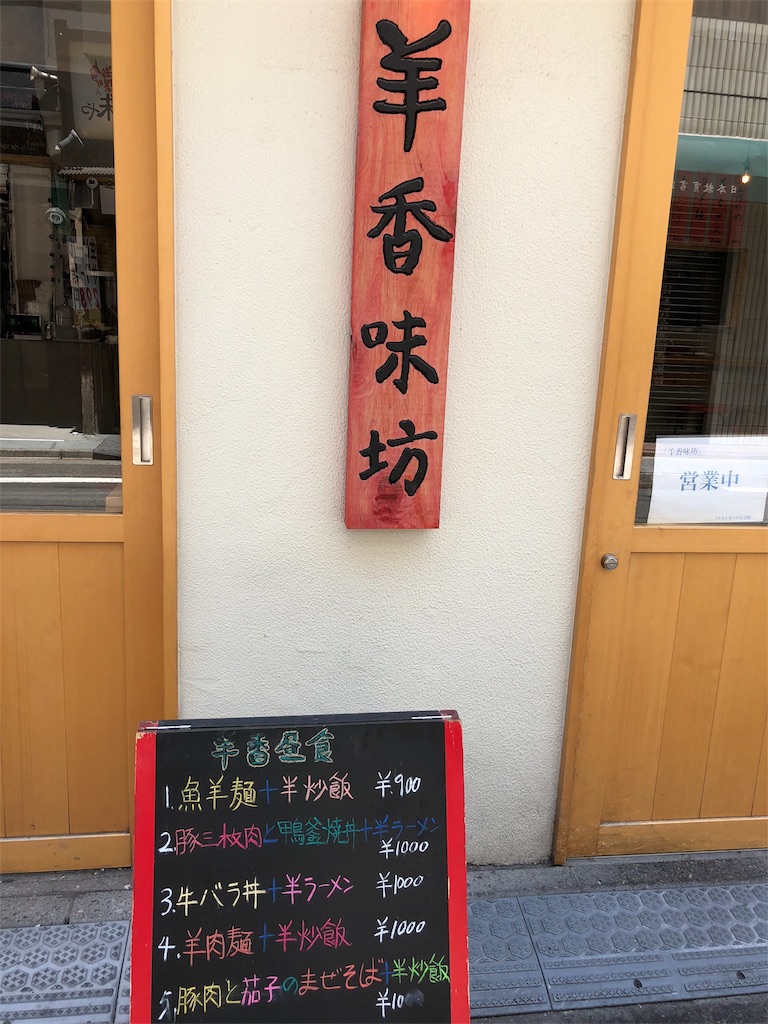 羊香味坊
「羊香味坊」
営業中
羊香昼食
1.魚羊麺+半炒飯 ¥900
2.豚三枚肉と鴨釜焼丼+半ラーメン
¥1000
3.牛バラ丼+半ラーメン ¥1000
4.羊肉麺+半炒飯 ¥1000
5.豚肉と茄子のまぜそば+半炒飯
¥10